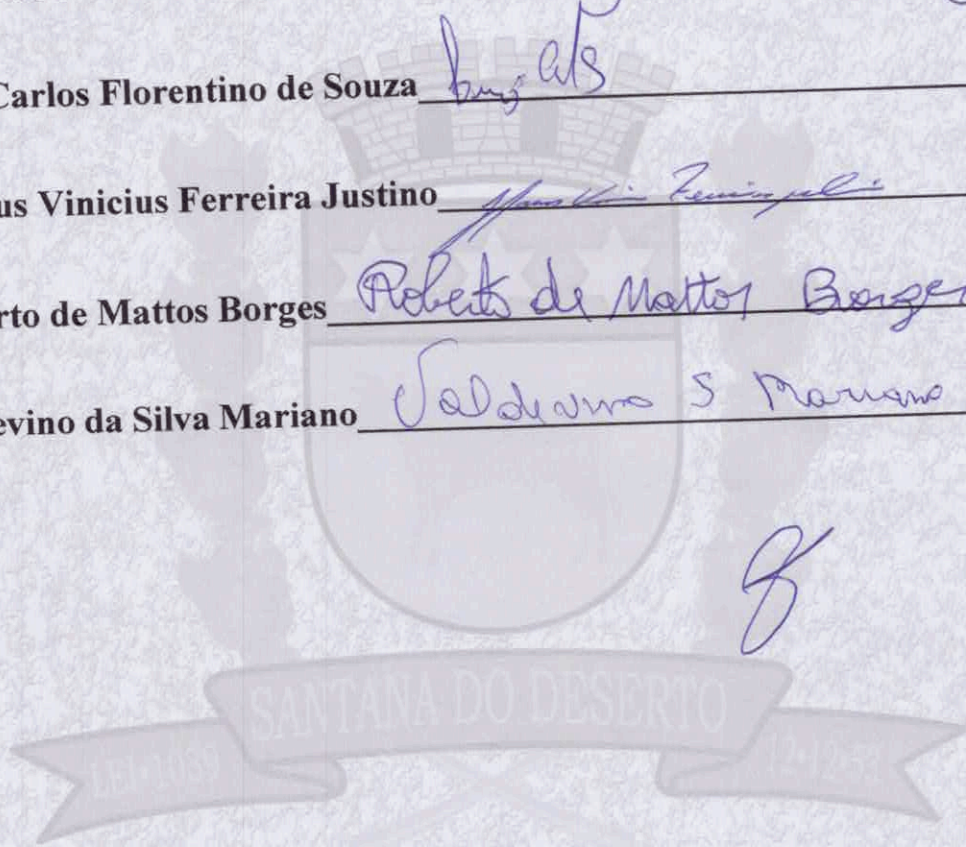 Carlos Florentino de Souza
us Vinicius Ferreira Justino
rto de Mattos Borges Roberto de Mattos Borges
evino da Silva Mariano Valdevino S Mariano
SANTANA DO DESERTO
LEI-1039 12-12-53